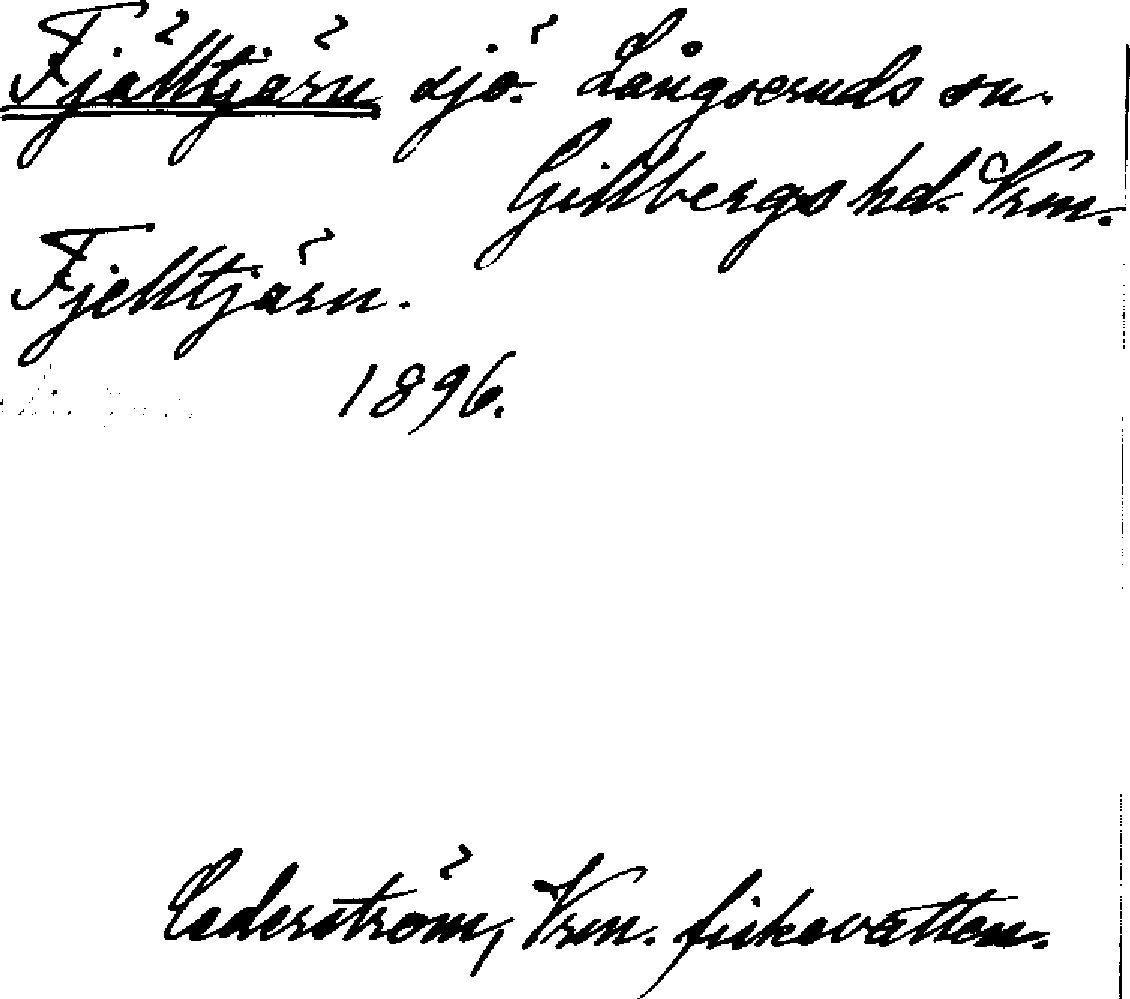 Fjälltjärn sjö. Långseruds sn.
Gillbergs hd. Vrm.
Fjelltjärn.
1896.
Cederström, Vrm. fiskevatten.